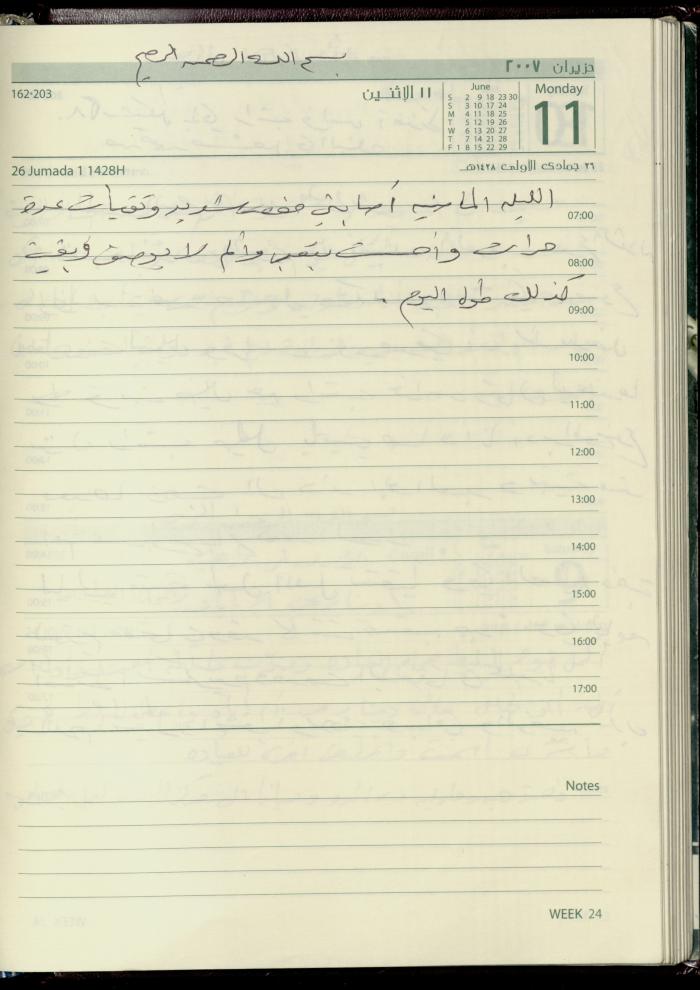 بسم الله الرحمن الرحيم
حزيران ٢٠٠٧
162-203
١١ الإثنين
June
S 2 9 18 23 30
S 3 10 17 24
M 4 11 18 25
T 5 12 19 26
W 6 13 20 27
T 7 14 21 28
F 1 8 15 22 29
Monday
11
26 Jumada 1 1428H
٢٦ جمادى الأولى ١٤٢٨هـ
الليله الماضيه أصابني مغص شديد وتقيأت عدة
07:00
مرات وأحسست بتعب وألم لا يوصف وبقيت
08:00
كذلك طوال اليوم .
09:00
10:00
11:00
12:00
13:00
14:00
15:00
16:00
17:00
Notes
WEEK 24